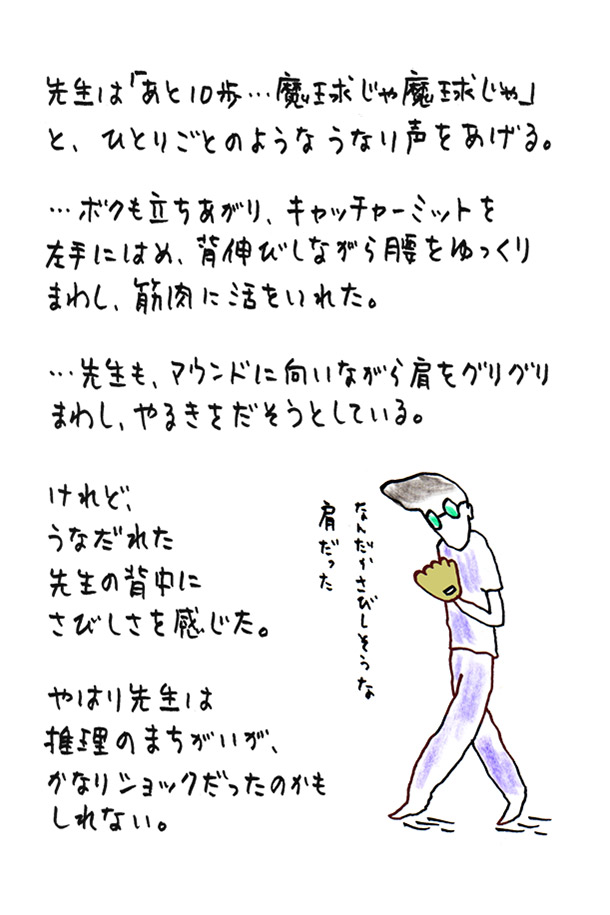 先生は「あと10歩…魔球じゃ魔球じゃ」
と、ひとりごとのようなうなり声をあげる。
…ボクも立ちあがり、キャッチャーミットを
左手にはめ、背伸びしながら腰をゆっくり
まわし、筋肉に活をいれた。
…先生も、マウンドに向いながら肩をグリグリ
まわし、やるきをだそうとしている。
けれど、
うなだれた
先生の背中に
さびしさを感じた。
やはり先生は
推理のまちがいが、
かなりショックだったのかも
しれない。
なんだかさびしそうな
肩だった